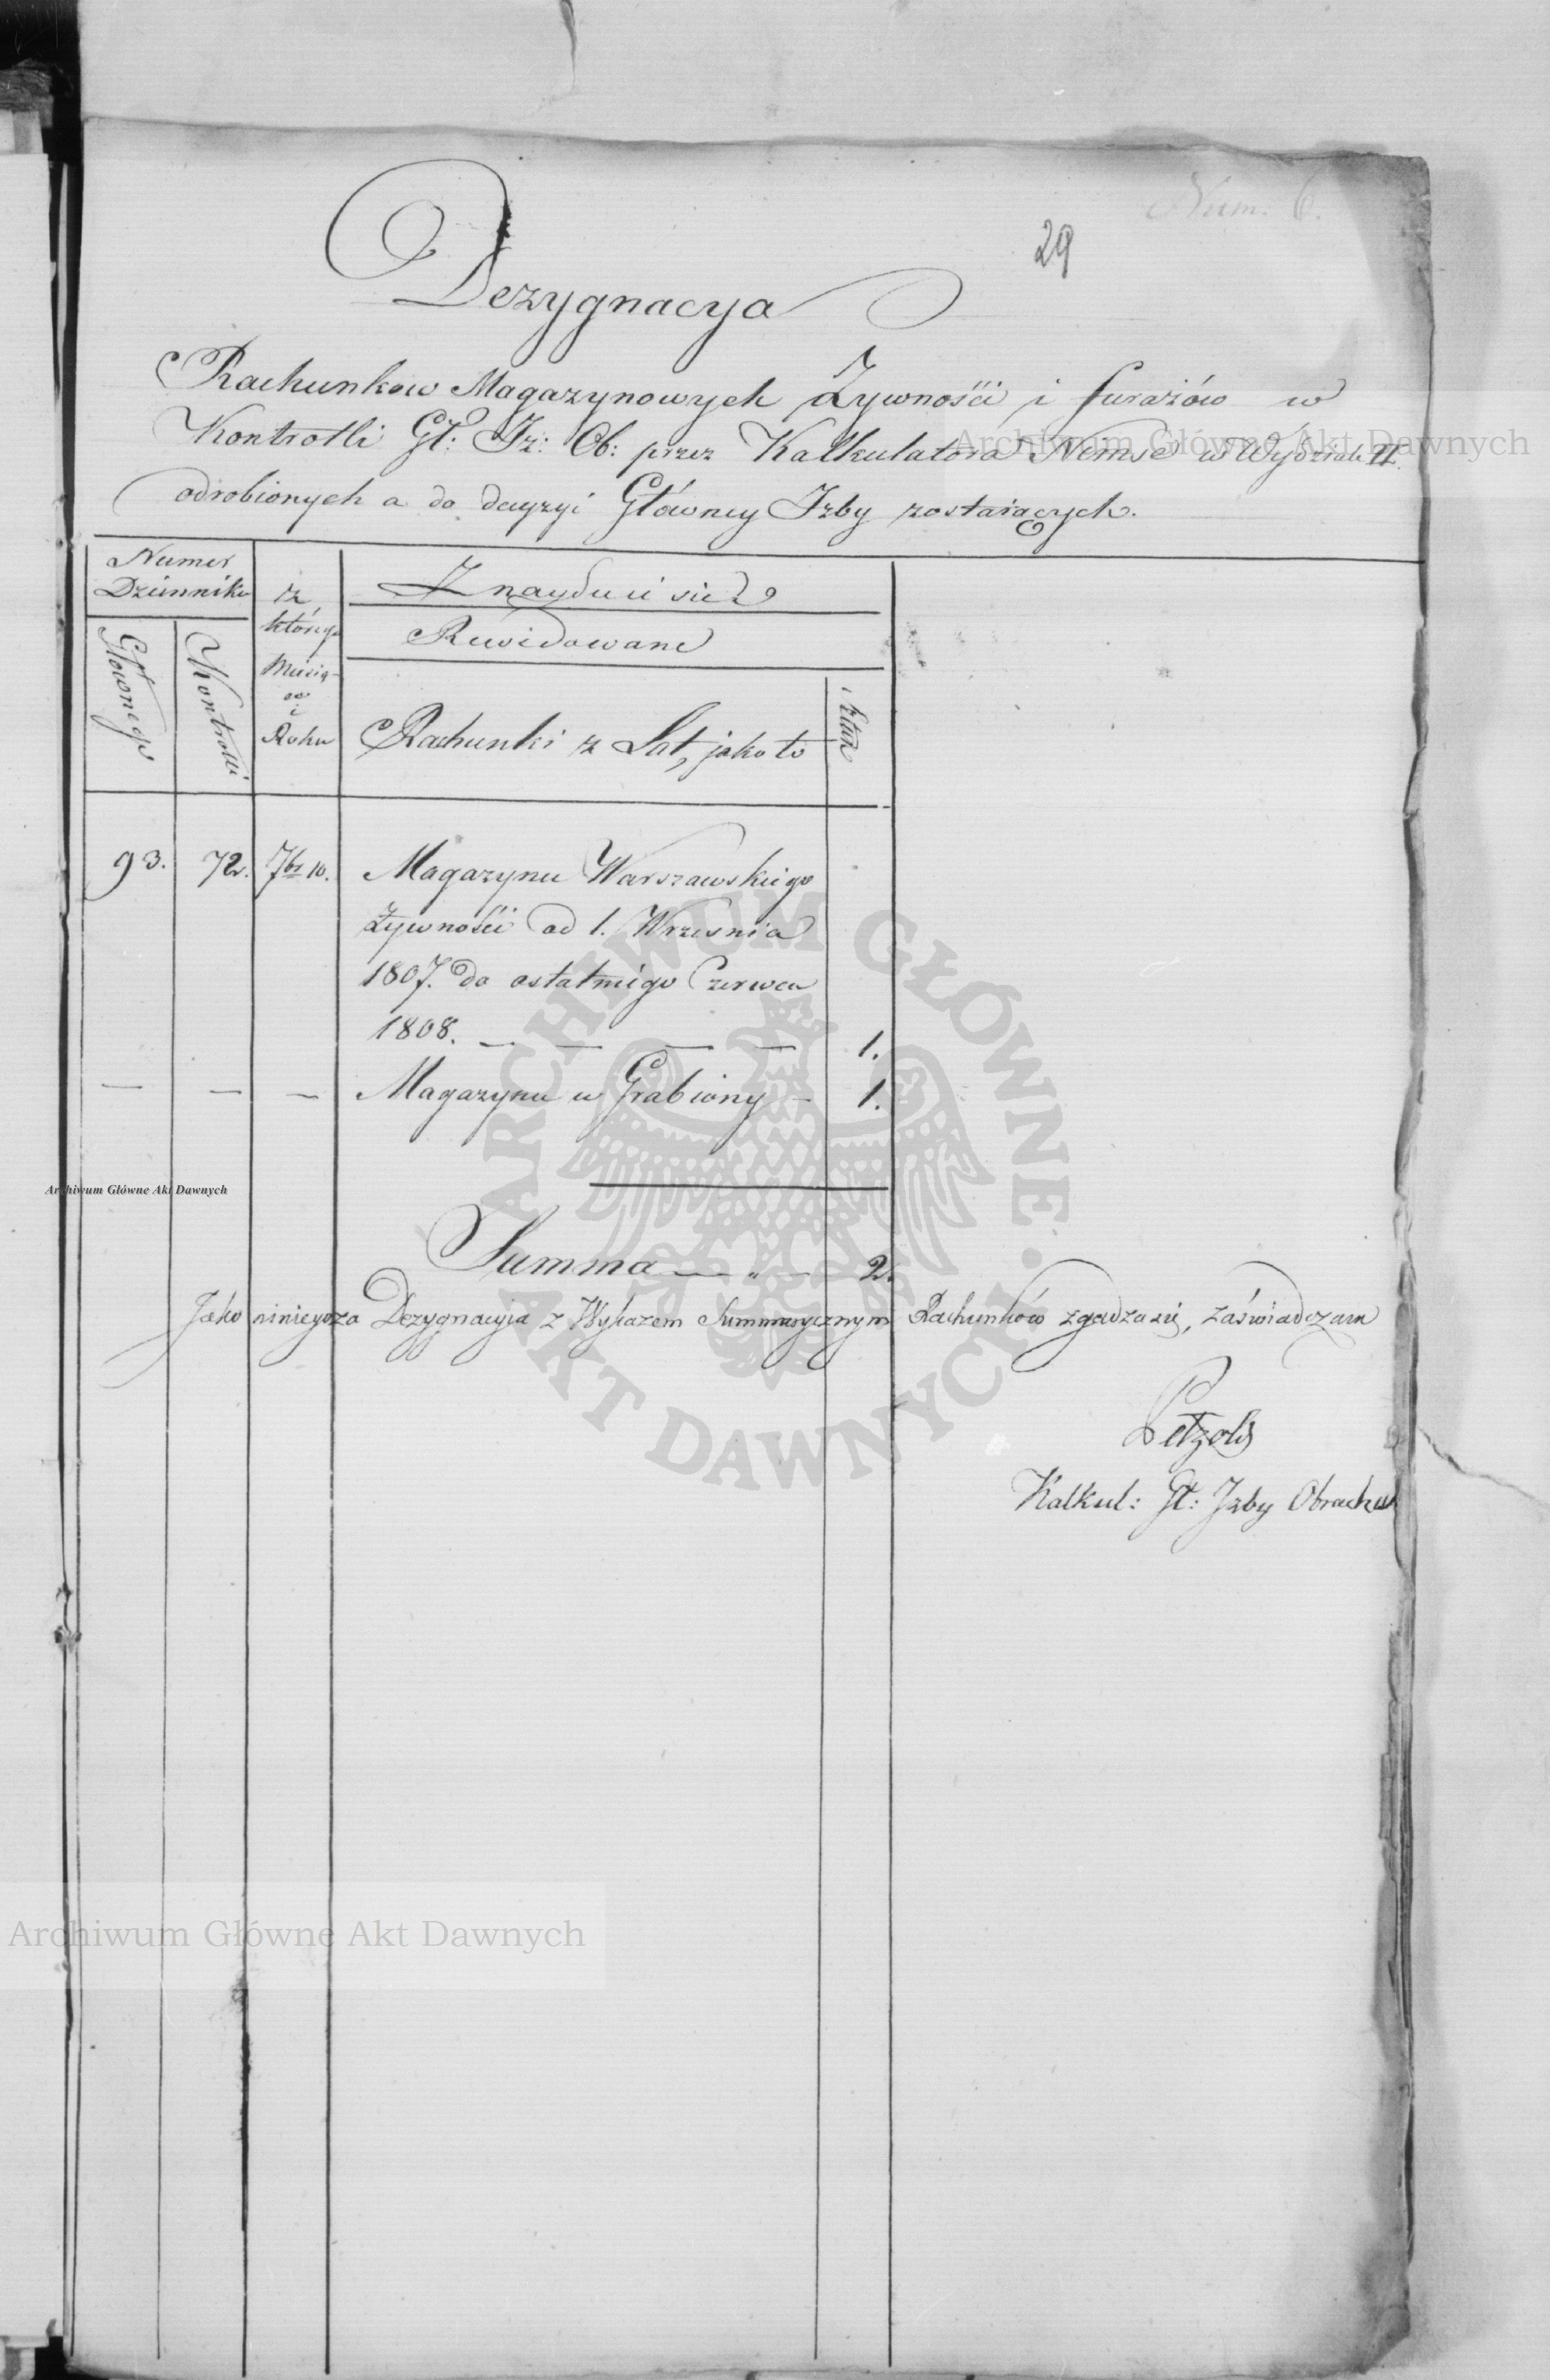 Num. 6.
29
Dezygnacya
Rachunkow Magazynowych Żywności i furażów w
Kontrolli Gł: Iz: Ob: przez Kalkulatora Nemse w Wydziale II.
odrobionych a do decyzyi Główney Izby zostaiących.
Numer
Dziennika
Głownego
Kontrolli
z
którego
Miesią-
ca
i
Roku
Znayduie się
Rewidowane
Rachunki z Lat, jako to
Sztuk
93. 72. 7br 10. Magazynu Warszawskiego
Żywności od 1. Wrzesnia
1807. do ostatniego Czerwca
1808. — — — — 1.
— — — Magazynu w Grabiony — 1.
Summa — „ — 2.
Jako ninieysza Dezygnacyia z Wykazem Summarycznym Rachunków zgadza się, zaświadczam
Petzold
Kalkul: Gł: Izby Obrachu
Archiwum Główne Akt Dawnych
Archiwum Główne Akt Dawnych
Archiwum Główne Akt Dawnych
ARCHIWUM GŁÓWNE AKT DAWNYCH